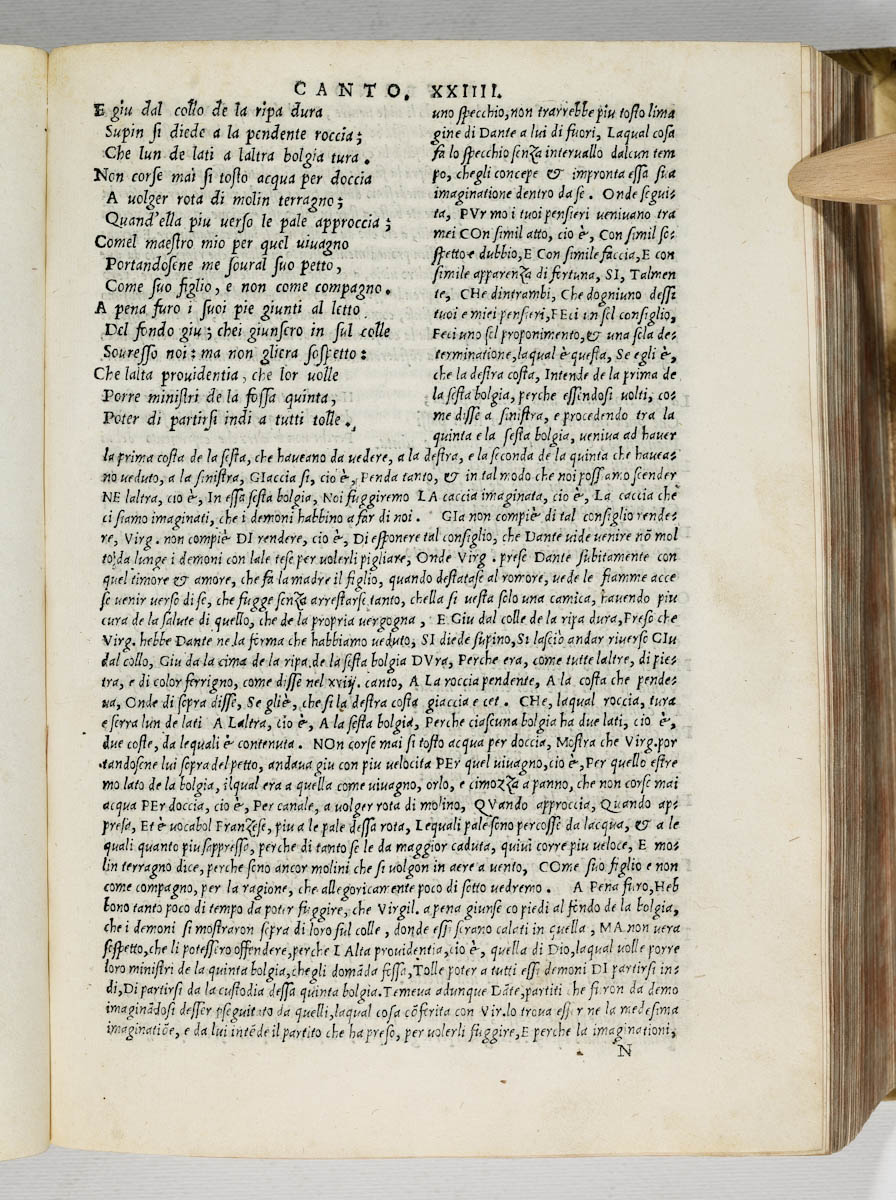 CANTO. XXIIII.
E giu dal collo de la ripa dura
Supin si diede a la pendente roccia;
Che lun de lati a laltra bolgia tura.
Non corse mai si tosto acqua per doccia
A uolger rota di molin terragno;
Quand'ella piu uerso le pale approccia;
Comel maestro mio per quel uiuagno
Portandosene me soural suo petto,
Come suo figlio, e non come compagno.
A pena furo i suoi pie giunti al letto
Del fondo giu; chei giunsero in sul colle
Souresso noi: ma non gliera sospetto:
Che lalta prouidentia, che lor uolle
Porre ministri de la fossa quinta,
Poter di partirsi indi a tutti tolle.
uno specchio, non trarrebbe piu tosto lima
gine di Dante a lui di fuori, Laqual cosa
fa lo specchio senza interuallo dalcun tem
po, chegli concepe & impronta essa sua
imaginatione dentro da se. Onde segui=
ta, PVr mo i tuoi pensieri ueniuano tra
mei COn simil atto, cio è, Con simil so=
spetto e dubbio, E Con simile faccia, E con
simile apparenza di fortuna, SI, Talmen
te, CHe dintrambi, Che dogniuno dessi
tuoi e miei pensieri, FEci un sol consiglio,
Feci uno sol proponimento, & una sola de=
terminatione, laqual è questa, Se egli è,
che la destra costa, Intende de la prima de
la sesta bolgia, perche essendosi uolti, co=
me disse a sinistra, e procedendo tra la
quinta e la sesta bolgia, ueniua ad hauer
la prima costa de la sesta, che haueano da uedere, a la destra, e la seconda de la quinta che hauea=
no ueduto, a la sinistra, GIaccia si, cio è, Penda tanto, & in tal modo che noi possamo scender
NE laltra, cio è, In essa sesta bolgia, Noi fuggiremo LA caccia imaginata, cio è, La caccia che
ci siamo imaginati, che i demoni habbino a far di noi. GIa non compiè di tal consiglio rende=
re, Virg. non compiè DI rendere, cio è, Di esponere tal consiglio, che Dante uide uenire nō mol
to da lunge i demoni con lale tese per uolerli pigliare, Onde Virg. prese Dante subitamente con
quel timore & amore, che fa la madre il figlio, quando destatasi al romore, uede le fiamme acce
se uenir uerso di se, che fugge senza arrestarsi tanto, chella si uesta solo una camica, hauendo piu
cura de la salute di quello, che de la propria uergogna, E Giu dal colle de la ripa dura, Preso che
Virg. hebbe Dante ne la forma che habbiamo ueduto, SI diede supino, Si lasciò andar riuerso GIu
dal collo, Giu da la cima de la ripa de la sesta bolgia DVra, Perche era, come tutte laltre, di pie=
tra, e di color ferrigno, come disse nel xviij. canto, A La roccia pendente, A la costa che pende=
ua, Onde di sopra disse, Se gliè, che si la destra costa giaccia e cet. CHe, laqual roccia, tura
e serra lun de lati A LaItra, cio è, A la sesta bolgia, Perche ciascuna bolgia ha due lati, cio è,
due coste, da lequali è contenuta. NOn corse mai si tosto acqua per doccia, Mostra che Virg. por
tandosene lui sopra del petto, andaua giu con piu uelocita PEr quel uiuagno, cio è, Per quello estre
mo lato de la bolgia, ilqual era a quella come uiuagno, orlo, e cimozza a panno, che non corse mai
acqua PEr doccia, cio è, Per canale, a uolger rota di molino, QVando approccia, Quando ap=
pressa, Et è uocabol Franzese, piu a le pale dessa rota, Lequali pale sono percosse da lacqua, & a le
quali quanto piu sappressa, perche di tanto se le da maggior caduta, quiui corre piu ueloce, E mo=
lin terragno dice, perche sono ancor molini che si uolgon in aere a uento, COme suo figlio e non
come compagno, per la ragione, che allegoricamente poco di sotto uedremo. A Pena furo, Heb
bono tanto poco di tempo da poter fuggire, che Virgil. a pena giunse co piedi al fondo de la bolgia,
che i demoni si mostraron sopra di loro sul colle, donde essi serano calati in quella, MA non uera
sospetto, che li potessero offendere, perche l Alta prouidentia, cio è, quella di Dio, laqual uolle porre
loro ministri de la quinta bolgia, chegli domāda fossa, Tolle poter a tutti essi demoni DI partirsi in=
di, Di partirsi da la custodia dessa quinta bolgia. Temeua adunque Dāte, partiti che si ron da demo
imaginādosi desser pseguitato da quelli, laqual cosa cōferita con Vir. lo troua esser ne la medesima
imaginatiōe, e da lui intēde il partito che ha preso, per uolerli fuggire, E perche la imaginationi,
N